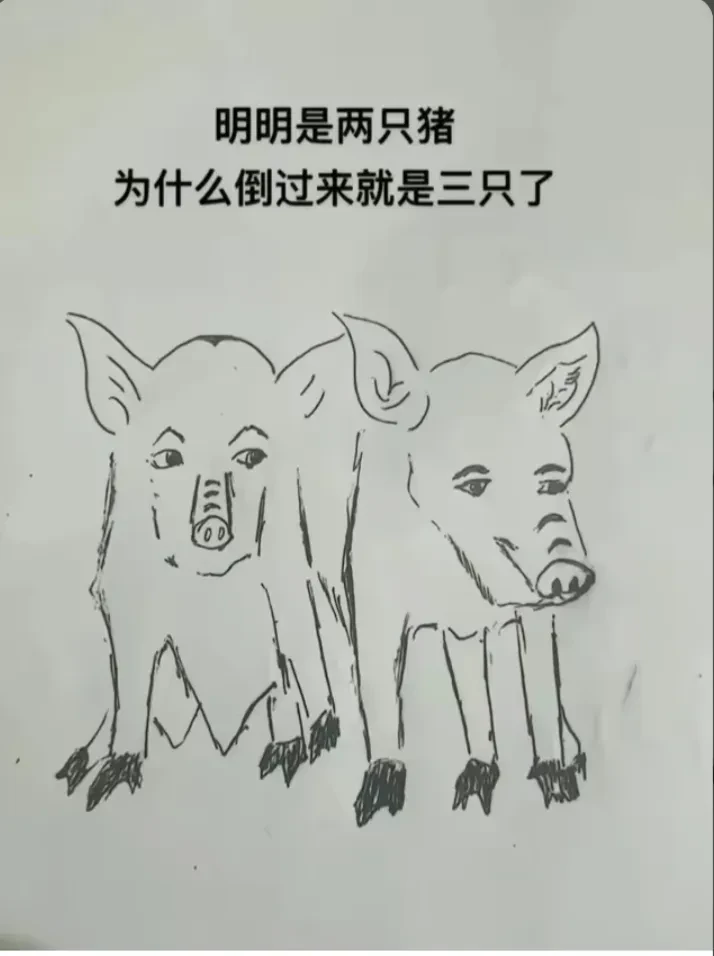 明明是两只猪
为什么倒过来就是三只了